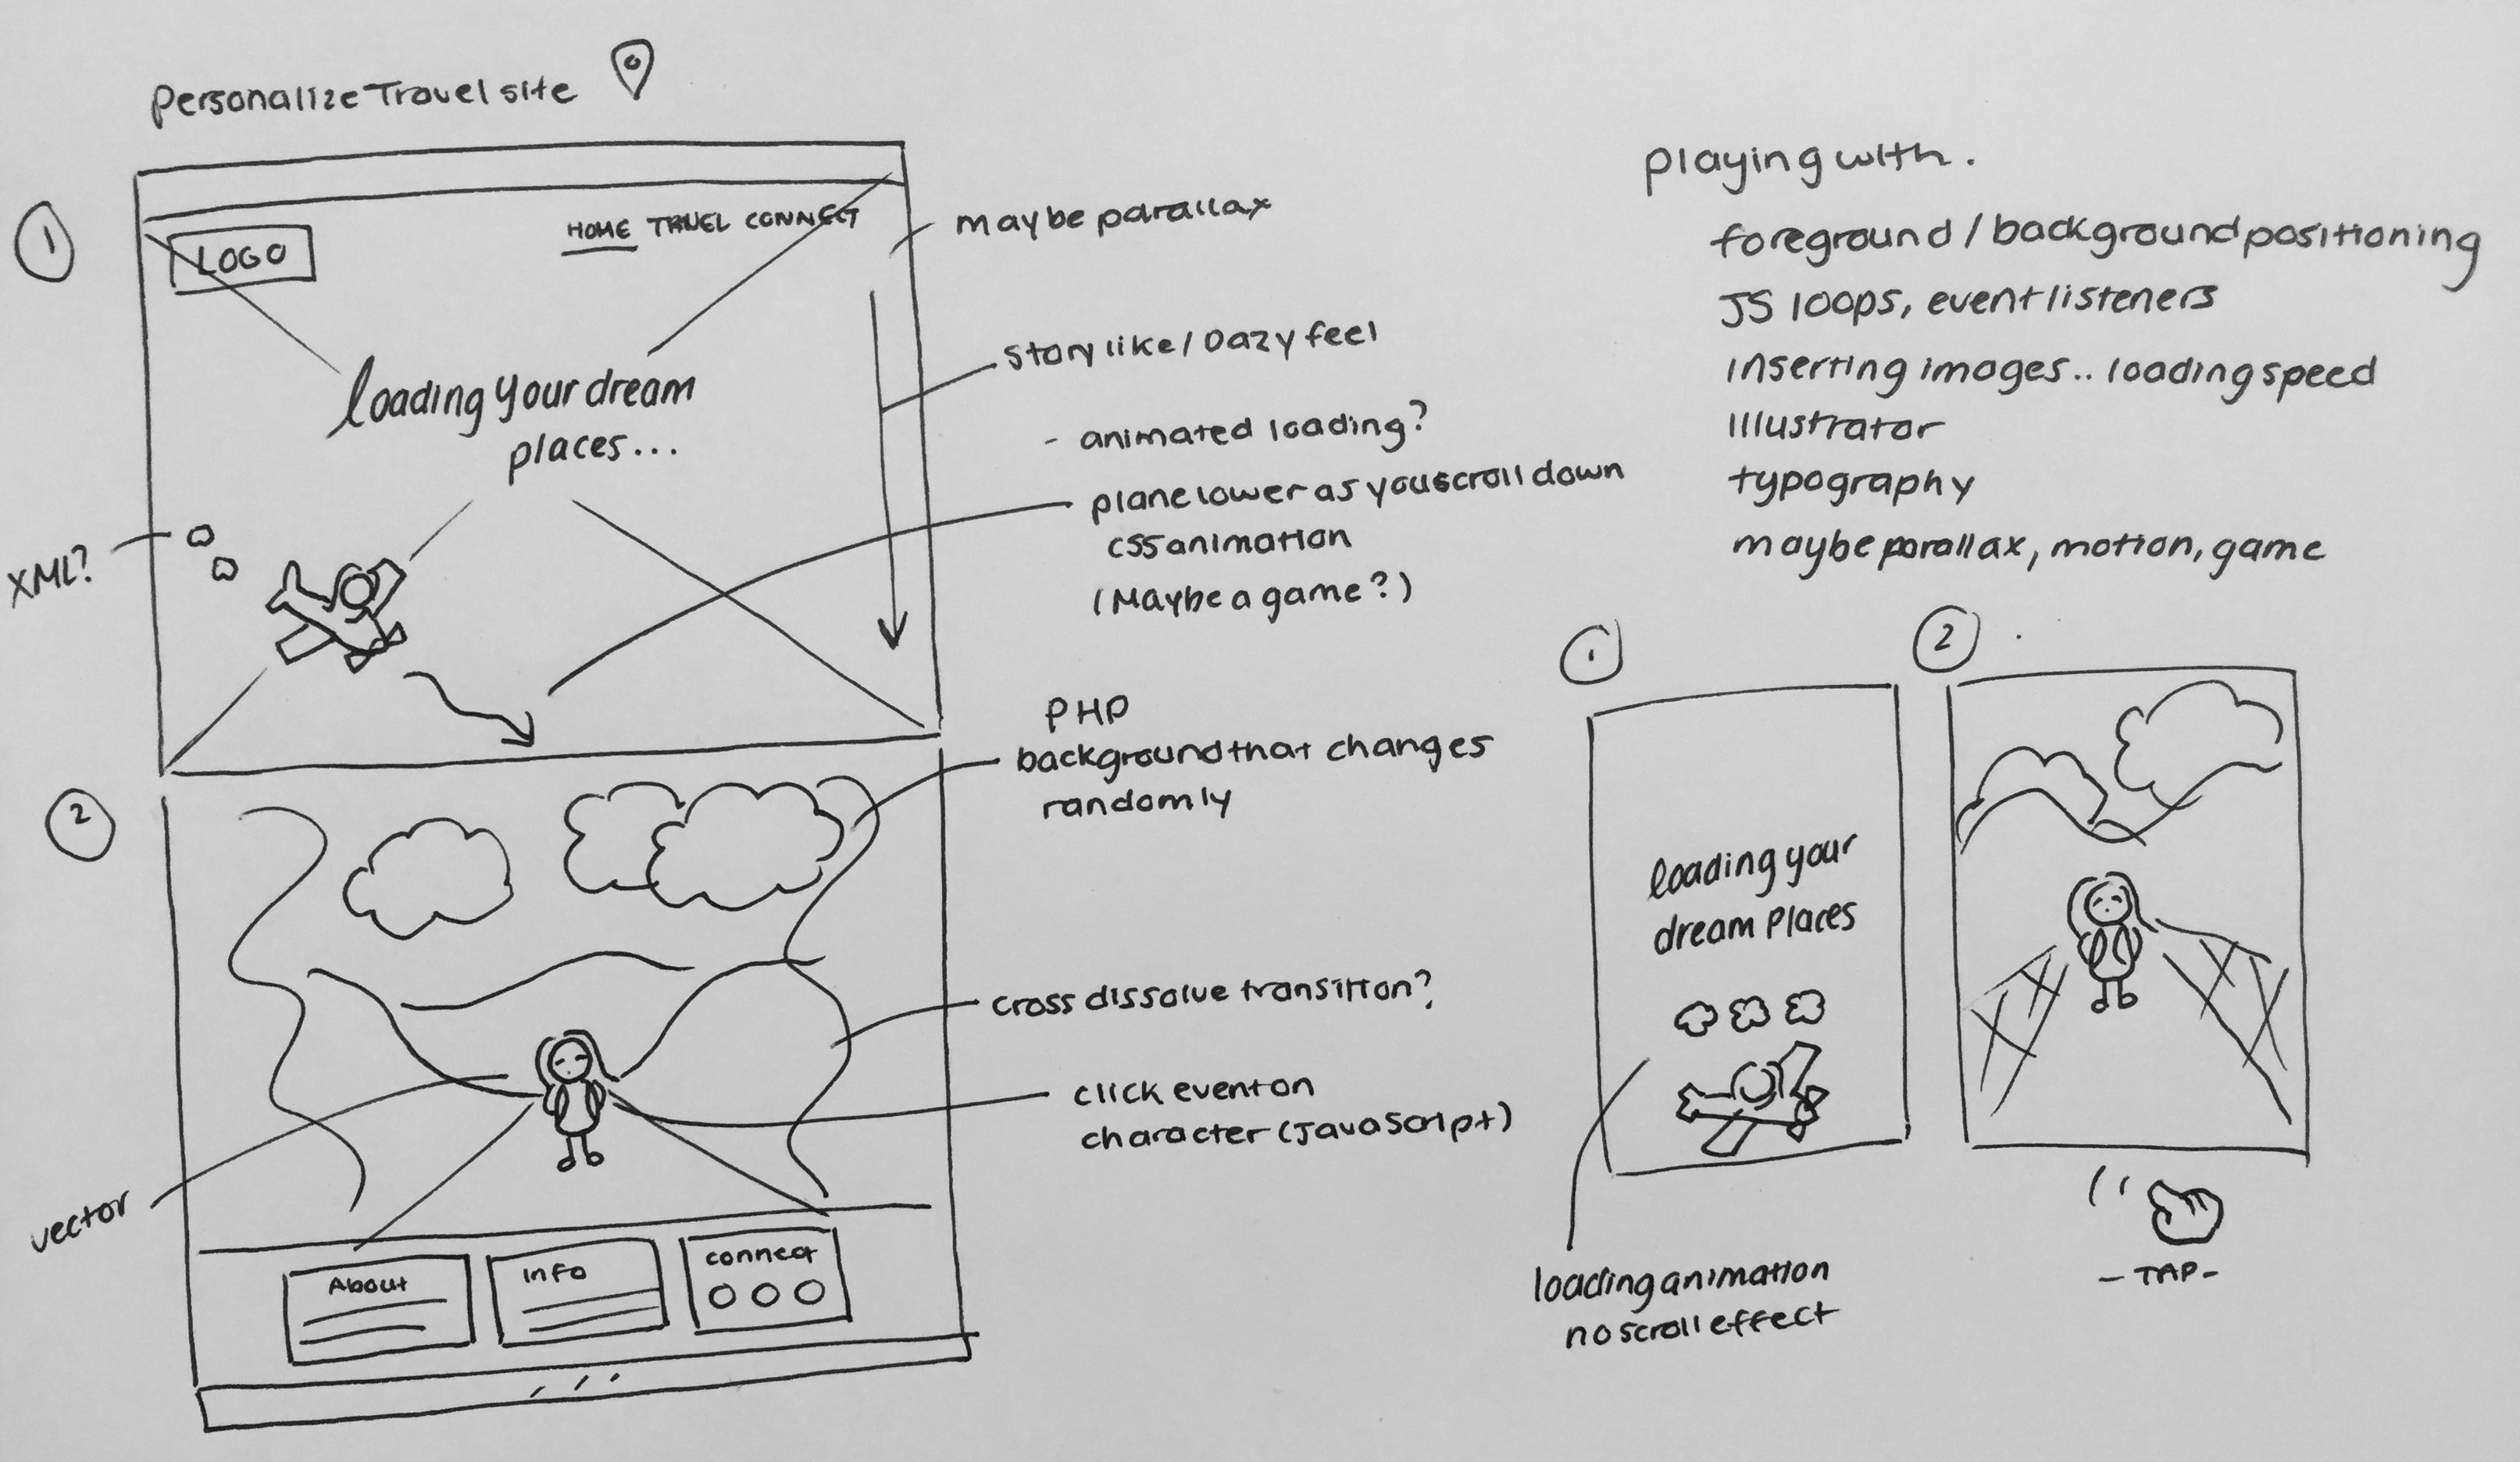 Personalize Travel site
1
LOGO
HOME TRAVEL CONNECT
loading your dream
places...
XML?
maybe parallax
story like / Dazy feel
- animated loading?
plane lower as you scroll down
css animation
(Maybe a game?)
2
PHP
background that changes
randomly
cross dissolve transition?
click event on
character (JavaScript)
vector
About
Info
connect
playing with.
foreground / background positioning
JS loops, event listeners
inserting images.. loading speed
Illustrator
typography
maybe parallax, motion, game
1
loading your
dream Places
loading animation
no scroll effect
2
- TAP -